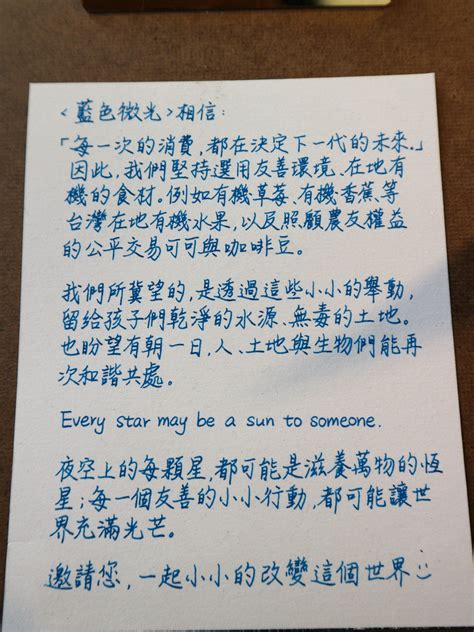 <藍色微光>相信:
「每一次的消費,都在決定下一代的未來.」
因此,我們堅持選用友善環境、在地有
機的食材。例如有機草莓、有機香蕉等
台灣在地有機水果,以及照顧農友權益
的公平交易可可與咖啡豆。
我們所冀望的,是透過這些小小的舉動,
留給孩子們乾淨的水源、無毒的土地。
也盼望有朝一日,人、土地與生物們能再
次和諧共處。
Every star may be a sun to someone.
夜空上的每顆星,都可能是滋養萬物的恆
星;每一個友善的小小行動,都可能讓世
界充滿光芒。
邀請您,一起小小的改變這個世界:)